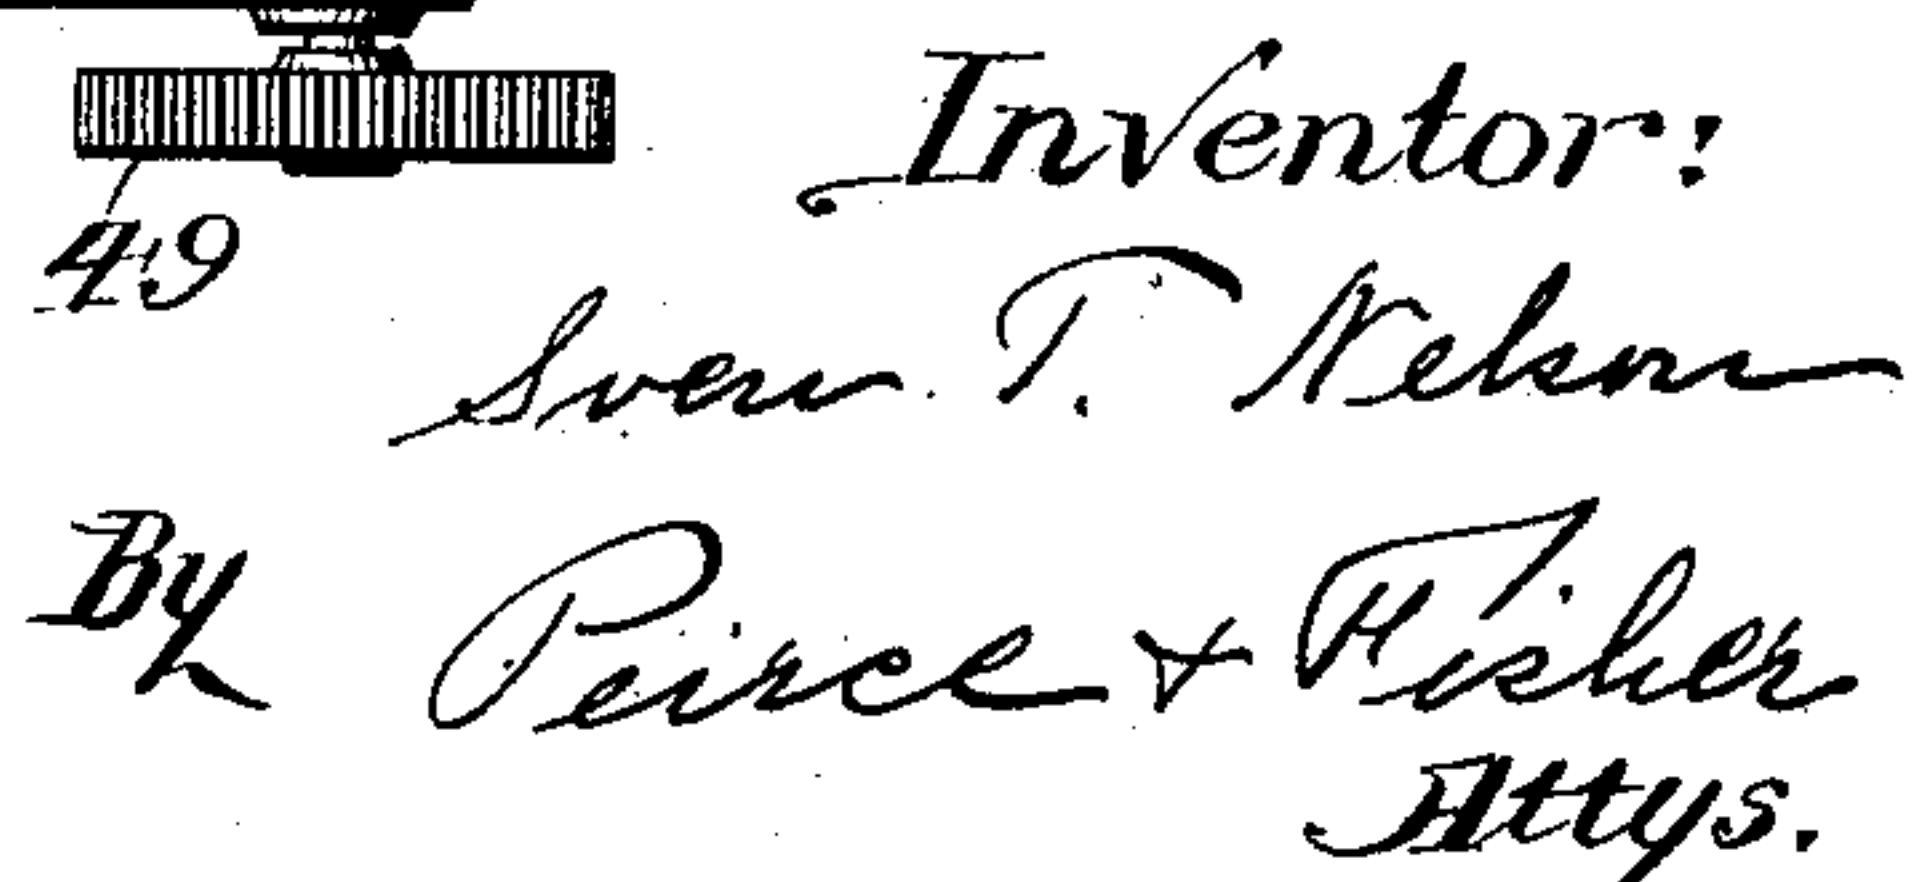 Inventor:
49
Sven T. Nelson
By Peirce & Fisher
Attys.